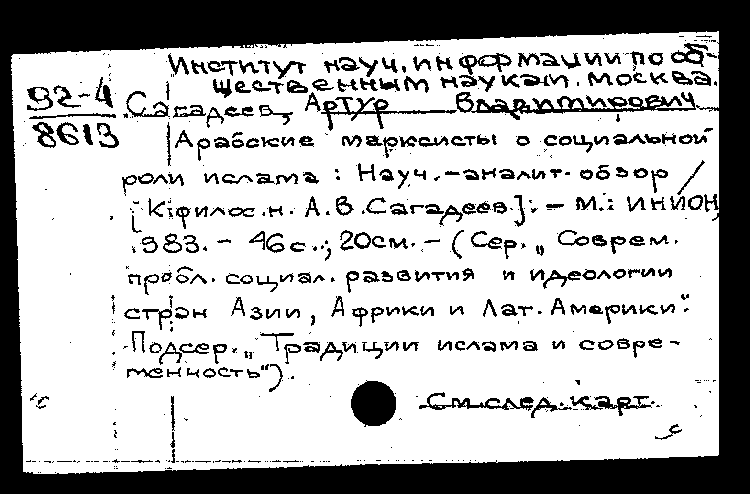 Институт науч. информации по об-
щественным наукам. Москва.
92-4
8613
Сагадеев, Артур Владимирович
Арабские марксисты о социальной
роли ислама : Науч.-аналит. обзор /
[К.филос.н. А.В.Сагадеев]. - М.: ИНИОН,
1983. - 46с.; 20см. - (Сер. „Соврем.
пробл. социал. развития и идеологии
стран Азии, Африки и Лат. Америки".
Подсер. „Традиции ислама и совре-
менность").
См след. карт.